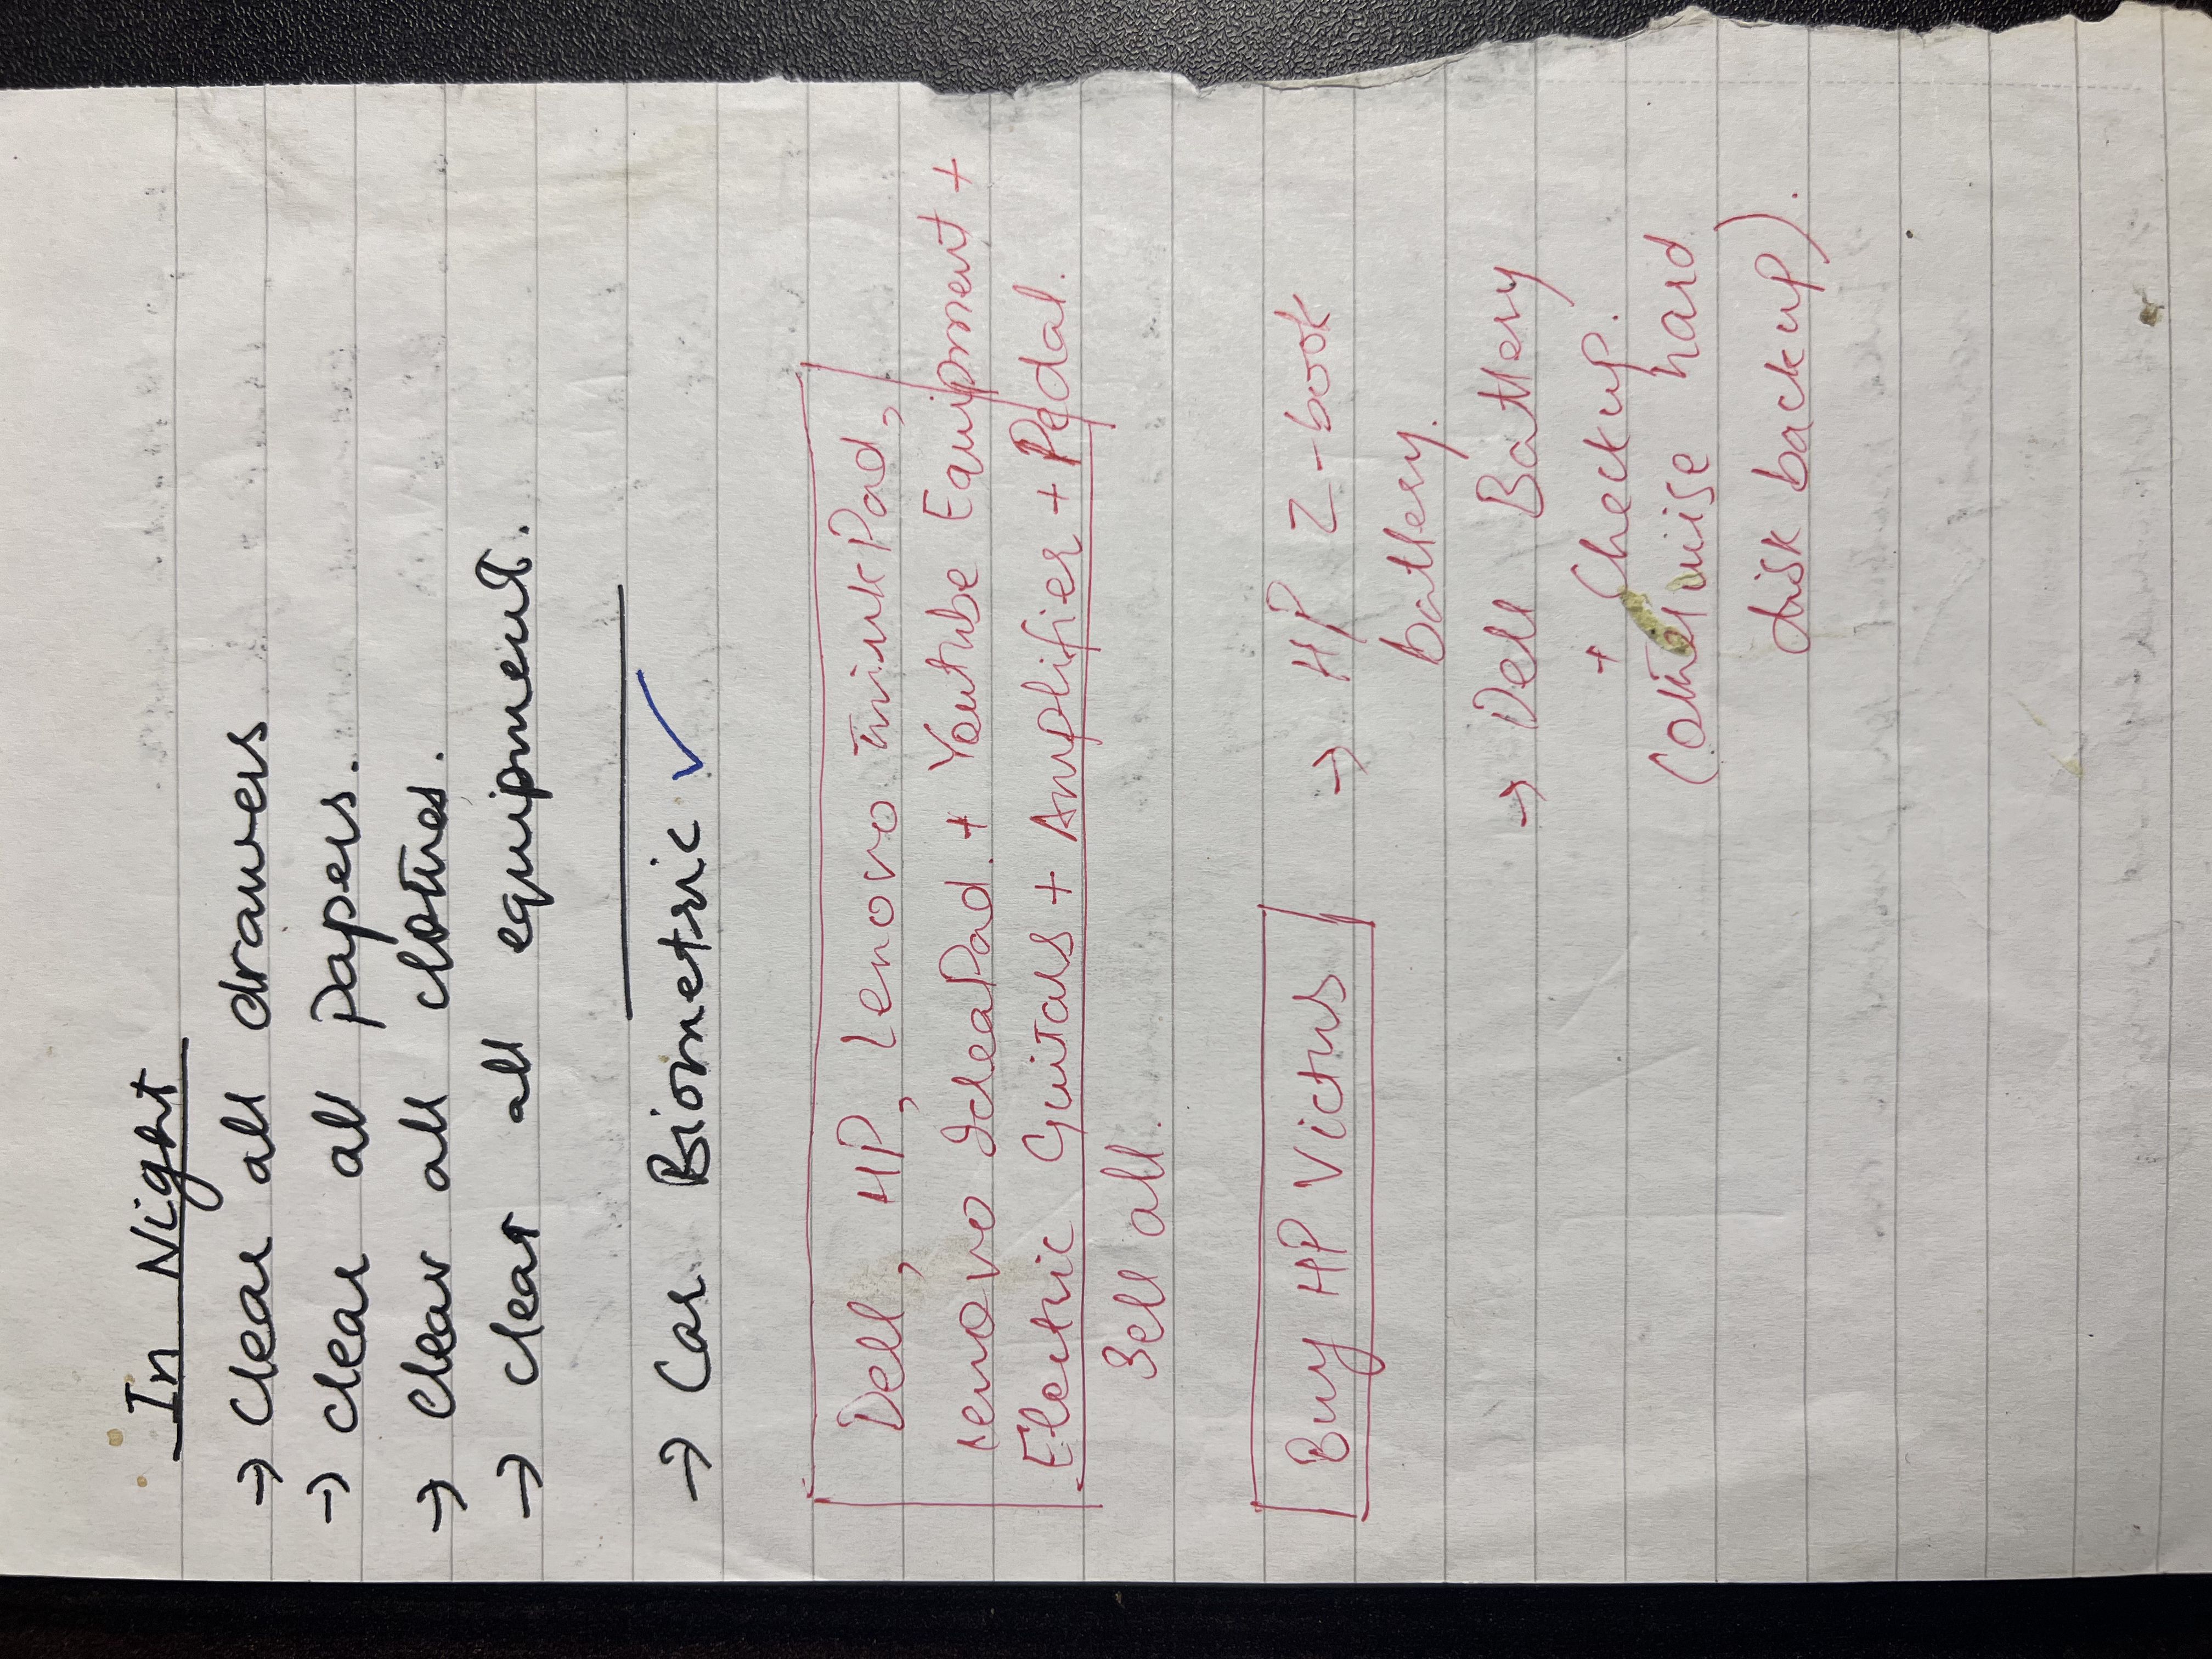 In Night
→ Clear all drawers
→ clear all papers.
→ clear all clothes.
→ clear all equipment.
→ Car Biometric ✓
Dell, HP, Lenovo ThinkPad,
Lenovo IdeaPad + Youtube Equipment +
Electric Guitars + Amplifier + Pedal.
Sell all.
Buy HP Victus
→ HP Z-book
battery.
→ Dell Battery
+ Checkup.
(otherwise hard
disk backup).